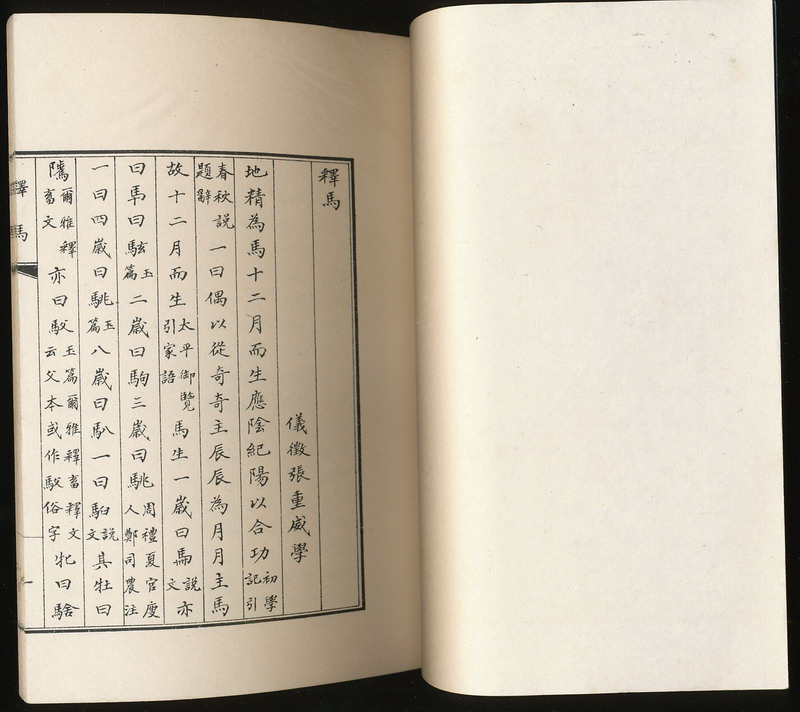 釋馬
儀徵張重威學
地精為馬十二月而生應陰紀陽以合功初學記引
春秋說題辭一曰偶以從奇奇主辰辰為月月主馬
故十二月而生太平御覽引家語馬生一歲曰馬說文亦
曰馬曰駭玉篇二歲曰駒三歲曰駣周禮夏官廋人鄭司農注
一曰四歲曰駣玉篇八歲曰馴一曰馰說文其牡曰
騭爾雅釋畜文亦曰䮛玉篇云父本或作䮛俗字爾雅釋畜釋文牝曰騇
釋馬
一